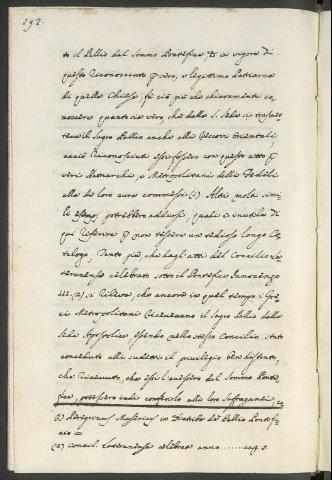 292.
to il Pallio dal Sommo Pontefice, e in vigore di
questo riconosciuto p vero, e legittimo Patriarca
di quella Chiesa; fà ciò più che chiaramente co-
noscere quanto sia vero, che dalla S. Sede si trasmet-
teva il Sagro Pallio anche alli Vescovi Orientali,
acciò riconosciuti essi fossero con questo atto p
veri Monarchi, e Metropolitani delli Fedeli
alla di loro cura commessi (1). Altri molti simi-
li esempj potrebbero addursi, quali è inutile di
qui riferire p non tessere un tedioso longo Ca-
talogo, Tanto più, che dagli atti del Concilio La-
teranense celebrato sotto il Pontefice Innocenzo
III. (2) si rileva, che ancora in quel tempo i Gre-
ci Metropolitani ricevevano il Sagro Pallio dalla
Sede Apostolica, essendo nello stesso Concilio stato
conceduto alli suditi il privilegio ben distinto,
che ricevuto, che essi l'avessero dal Sommo Ponte-
fice, potessero indi conferirlo alli loro Suffraganei,
(1) Peregrinus Maserius in Diatriba de Pallio Pontifi-
cio =
(2) Concil. Lateranense celebrat. anno ........ cap. 5